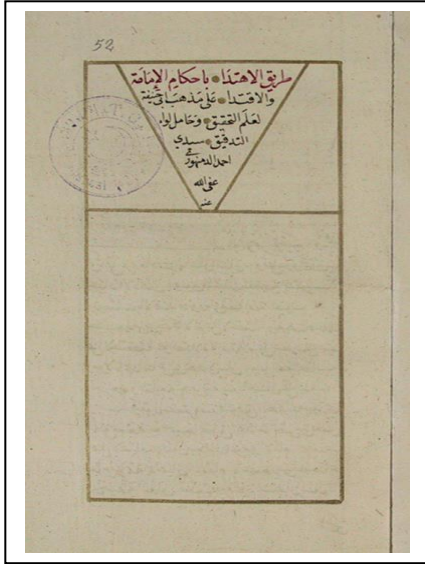 52
طريق الاهتداء باحكام الإمامة
والاقتداء على مذهب ابي حنيفة
لعلم التحقيق وحامل لواء
التدقيق سيدي
احمد الدمنهوري
عفى الله
عنه